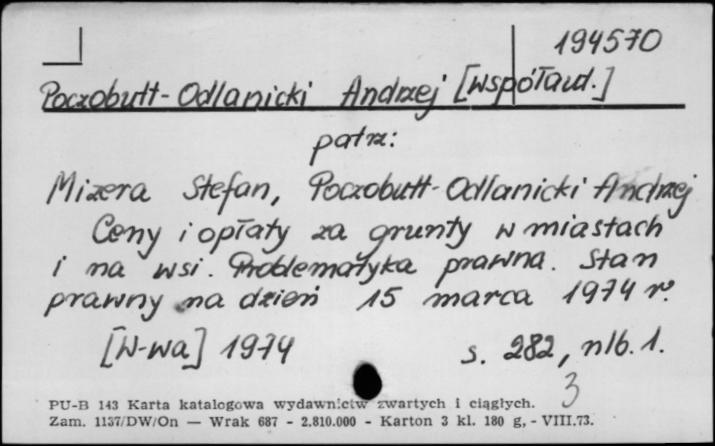 194570
Poczobutt-Odlanicki Andrzej [współaut.]
patrz:
Mizera Stefan, Poczobutt-Odlanicki Andrzej
Ceny i opłaty za grunty w miastach
i na wsi. Problematyka prawna. Stan
prawny na dzień 15 marca 1974 r.
[W-wa] 1974 s. 282, nlb. 1.
3
PU-B 143 Karta katalogowa wydawnictw zwartych i ciągłych.
Zam. 1137/DW/On — Wrak 687 - 2.810.000 - Karton 3 kl. 180 g, - VIII.73.